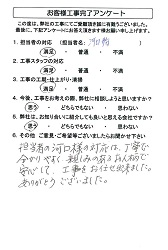 お客様工事完了アンケート
この度は、弊社の工事にてご愛顧頂き誠に有難うございました。
最後に、下記アンケートにお答え頂きます様お願い申し上げます。
1. 担当者の対応 (担当者名: 河口 様)
満足 ・ 普通 ・ 不満
2. 工事スタッフの対応
満足 ・ 普通 ・ 不満
3. 工事の工程・仕上がり・清掃
満足 ・ 普通 ・ 不満
4. 今後、工事をお考えの際、弊社に相談しようと思いますか?
思う ・ どちらでもない ・ 思わない
5. 弊社は、お知り合いに紹介しても良いと思う会社でしたか?
思う ・ どちらでもない ・ 思わない
6. その他 ご意見・ご希望等ございましたらお聞かせ下さい
担当者の河口様の対応は、丁寧で
分かりやすく、親しみの持てるお人柄で
安心して、工事をお任せ出来ました。
ありがとうございました。